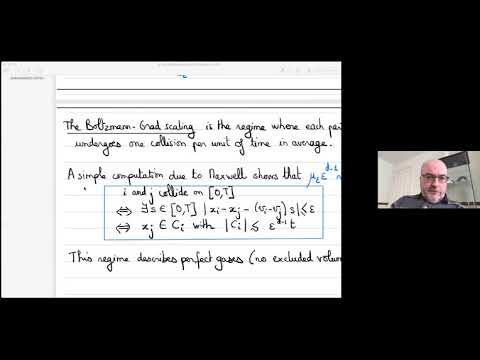 The Boltzmann-Grad scaling is the regime where each
undergoes one collision per unit of time in average.
A simple computation due to Maxwell shows that μ_ε ε^{d-1}
i and j collide on [0,T]
⇔ ∃ s ∈ [0,T] |x_i - x_j - (v_i - v_j) s| ≤ ε
⇔ x_j ∈ C_i with |C_i| ≤ ε^{d-1} t
This regime describes perfect gases (no excluded